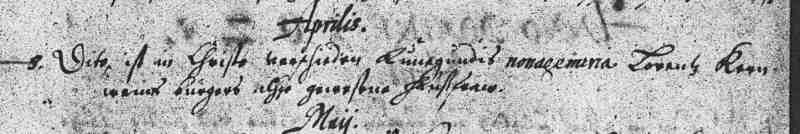 Aprilis.
8. Dito, ist in Christo verschieden Kunegundis nonagenaria Lorentz Kern-
weins burgers alhie gewesene Hausfraw.
Maij.